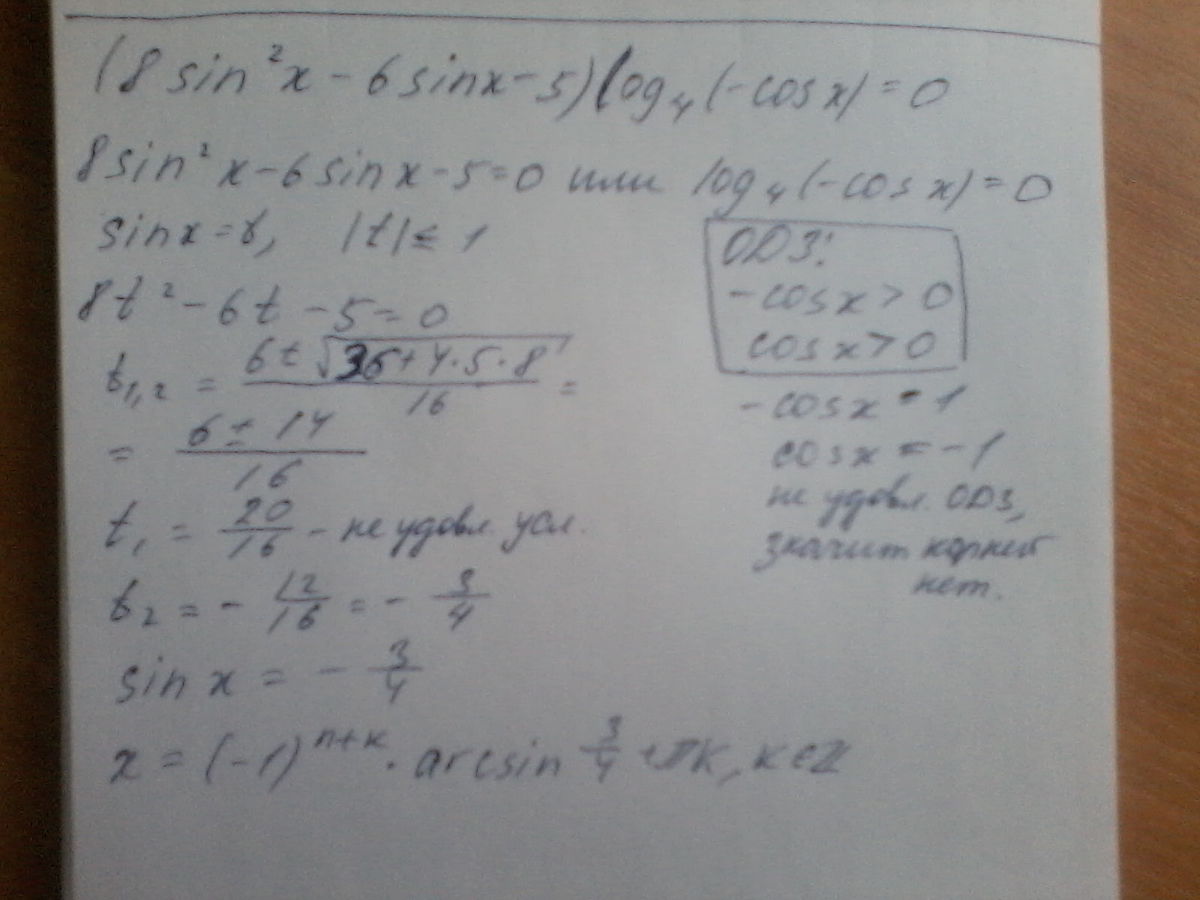 (8 sin²x - 6 sinx - 5) log₄(-cos x) = 0
8 sin²x - 6 sinx - 5 = 0 или log₄(-cos x) = 0
sinx = t, |t| ≤ 1
8t² - 6t - 5 = 0
t₁,₂ = (6 ± √(36 + 4·5·8))/16 =
= (6 ± 14)/16
t₁ = 20/16 - не удовл. усл.
t₂ = - 12/16 = - 3/4
sin x = - 3/4
x = (-1)ⁿ⁺ᵏ · arcsin 3/4 + πk, k∈Z
ОДЗ:
-cos x > 0
cos x > 0
-cos x = 1
cos x = -1
не удовл. ОДЗ,
значит корней
нет.